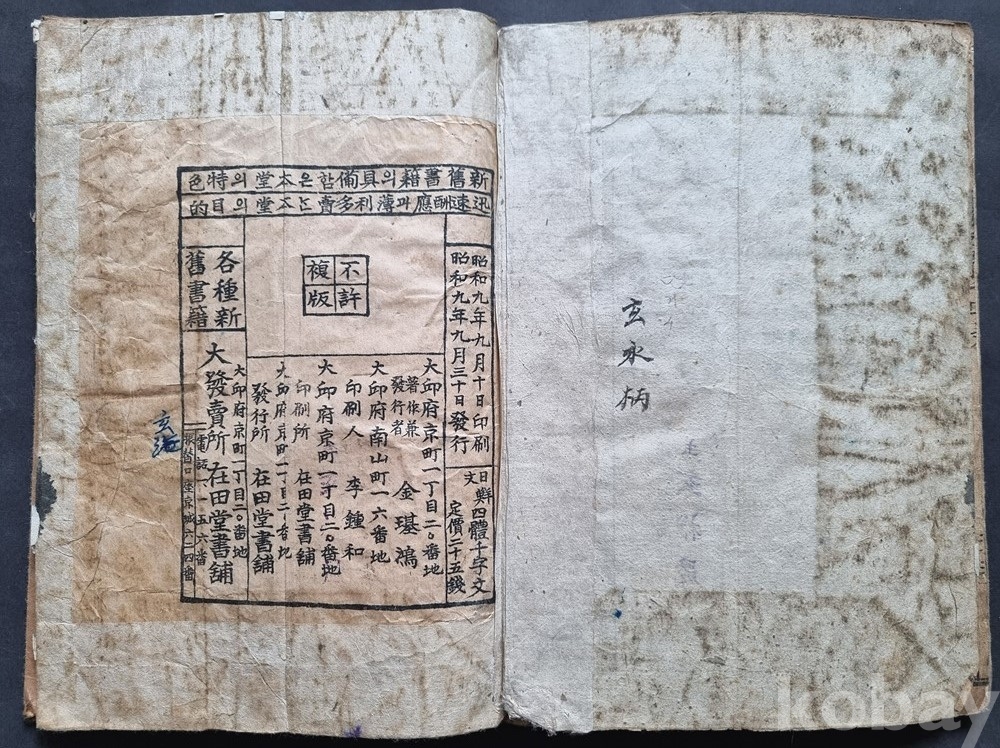 新舊書籍의具備함은本堂의特色
迅速酬應과薄利多賣는本堂의目的
昭和九年九月十日印刷
昭和九年九月三十日發行
日鮮文四體千字文
定價二十五錢
不許
複版
大邱府京町一丁目二〇番地
著作兼發行者 金璂鴻
大邱府南山町一六番地
印刷人 李鍾和
大邱府京町一丁目二〇番地
印刷所 在田堂書鋪
大邱府京町一丁目二〇番地
發行所 在田堂書鋪
各種新
舊書籍
大邱府京町一丁目二〇番地
大發賣所 在田堂書鋪
電話一一五六番
振替口座京城六二四番
玄永炳
kobay